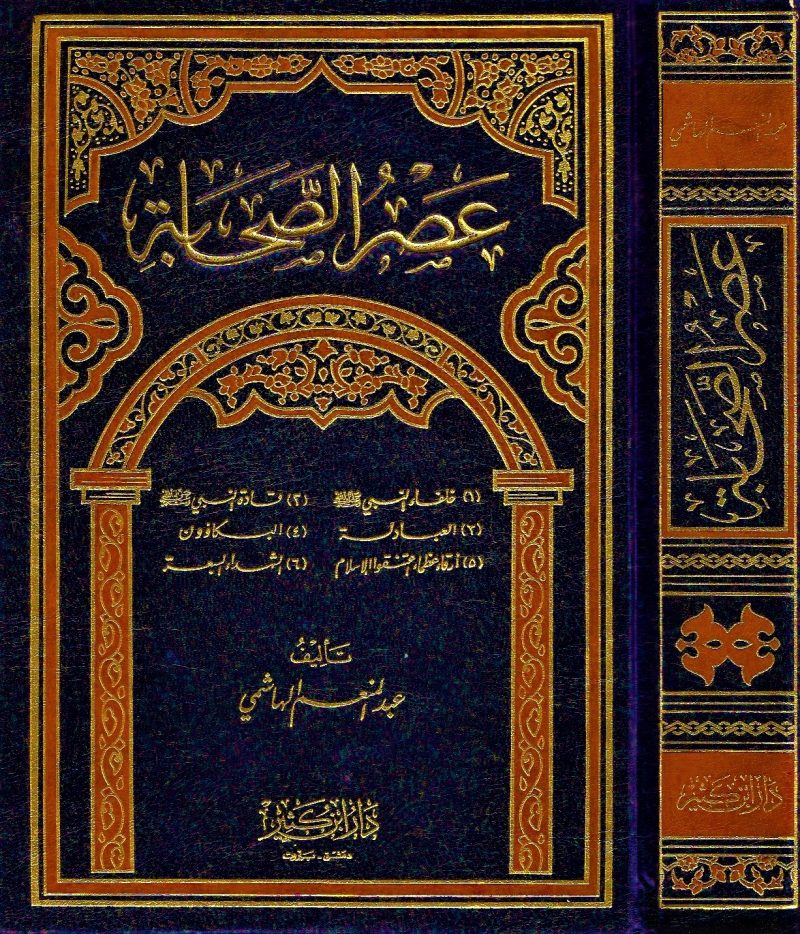 عَصْرُ الصَّحَابَةِ
(١) خلفاء النبي ﷺ (٢) قادة النبي ﷺ
(٣) العبادلة (٤) البكاؤون
(٥) أرقاء عظماء اعتنقوا الإسلام (٦) الشهداء السبعة
تأليف
عبد المنعم الهاشمي
دار ابن كثير
دمشق - بيروت
عبد المنعم الهاشمي
عَصْرُ الصَّحَابَةِ
دار ابن كثير